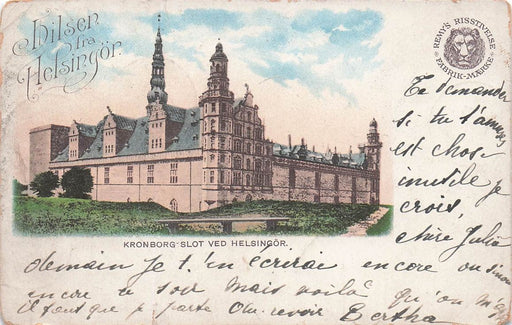 Hilsen
fra
Helsingör.
REMY'S RISSTIVELSE
FABRIK-MÆRKE
Te demander
si tu t'amuses
est chose
inutile je
crois,
chère Julia
KRONBORG SLOT VED HELSINGÖR.
demain je t'en écrirai encore ou sinon
encore ce soir mais voilà qu'on m'
il faut que je parte Au revoir Bertha